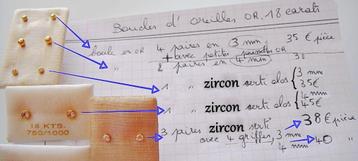 Boucles d'Oreilles OR. 18 carats
boule en OR 4 paires en 3 mm 35 € pièce
+ avec petites
" 2 paires en 4 mm
" 1 " zircon serti clos 3 mm 35€
" 1 " zircon serti clos 4 mm 45€
3 paires zircon serti
avec 4 griffes, 3 mm 38 € pièce
4 mm 40
18 KTS.
750/1000